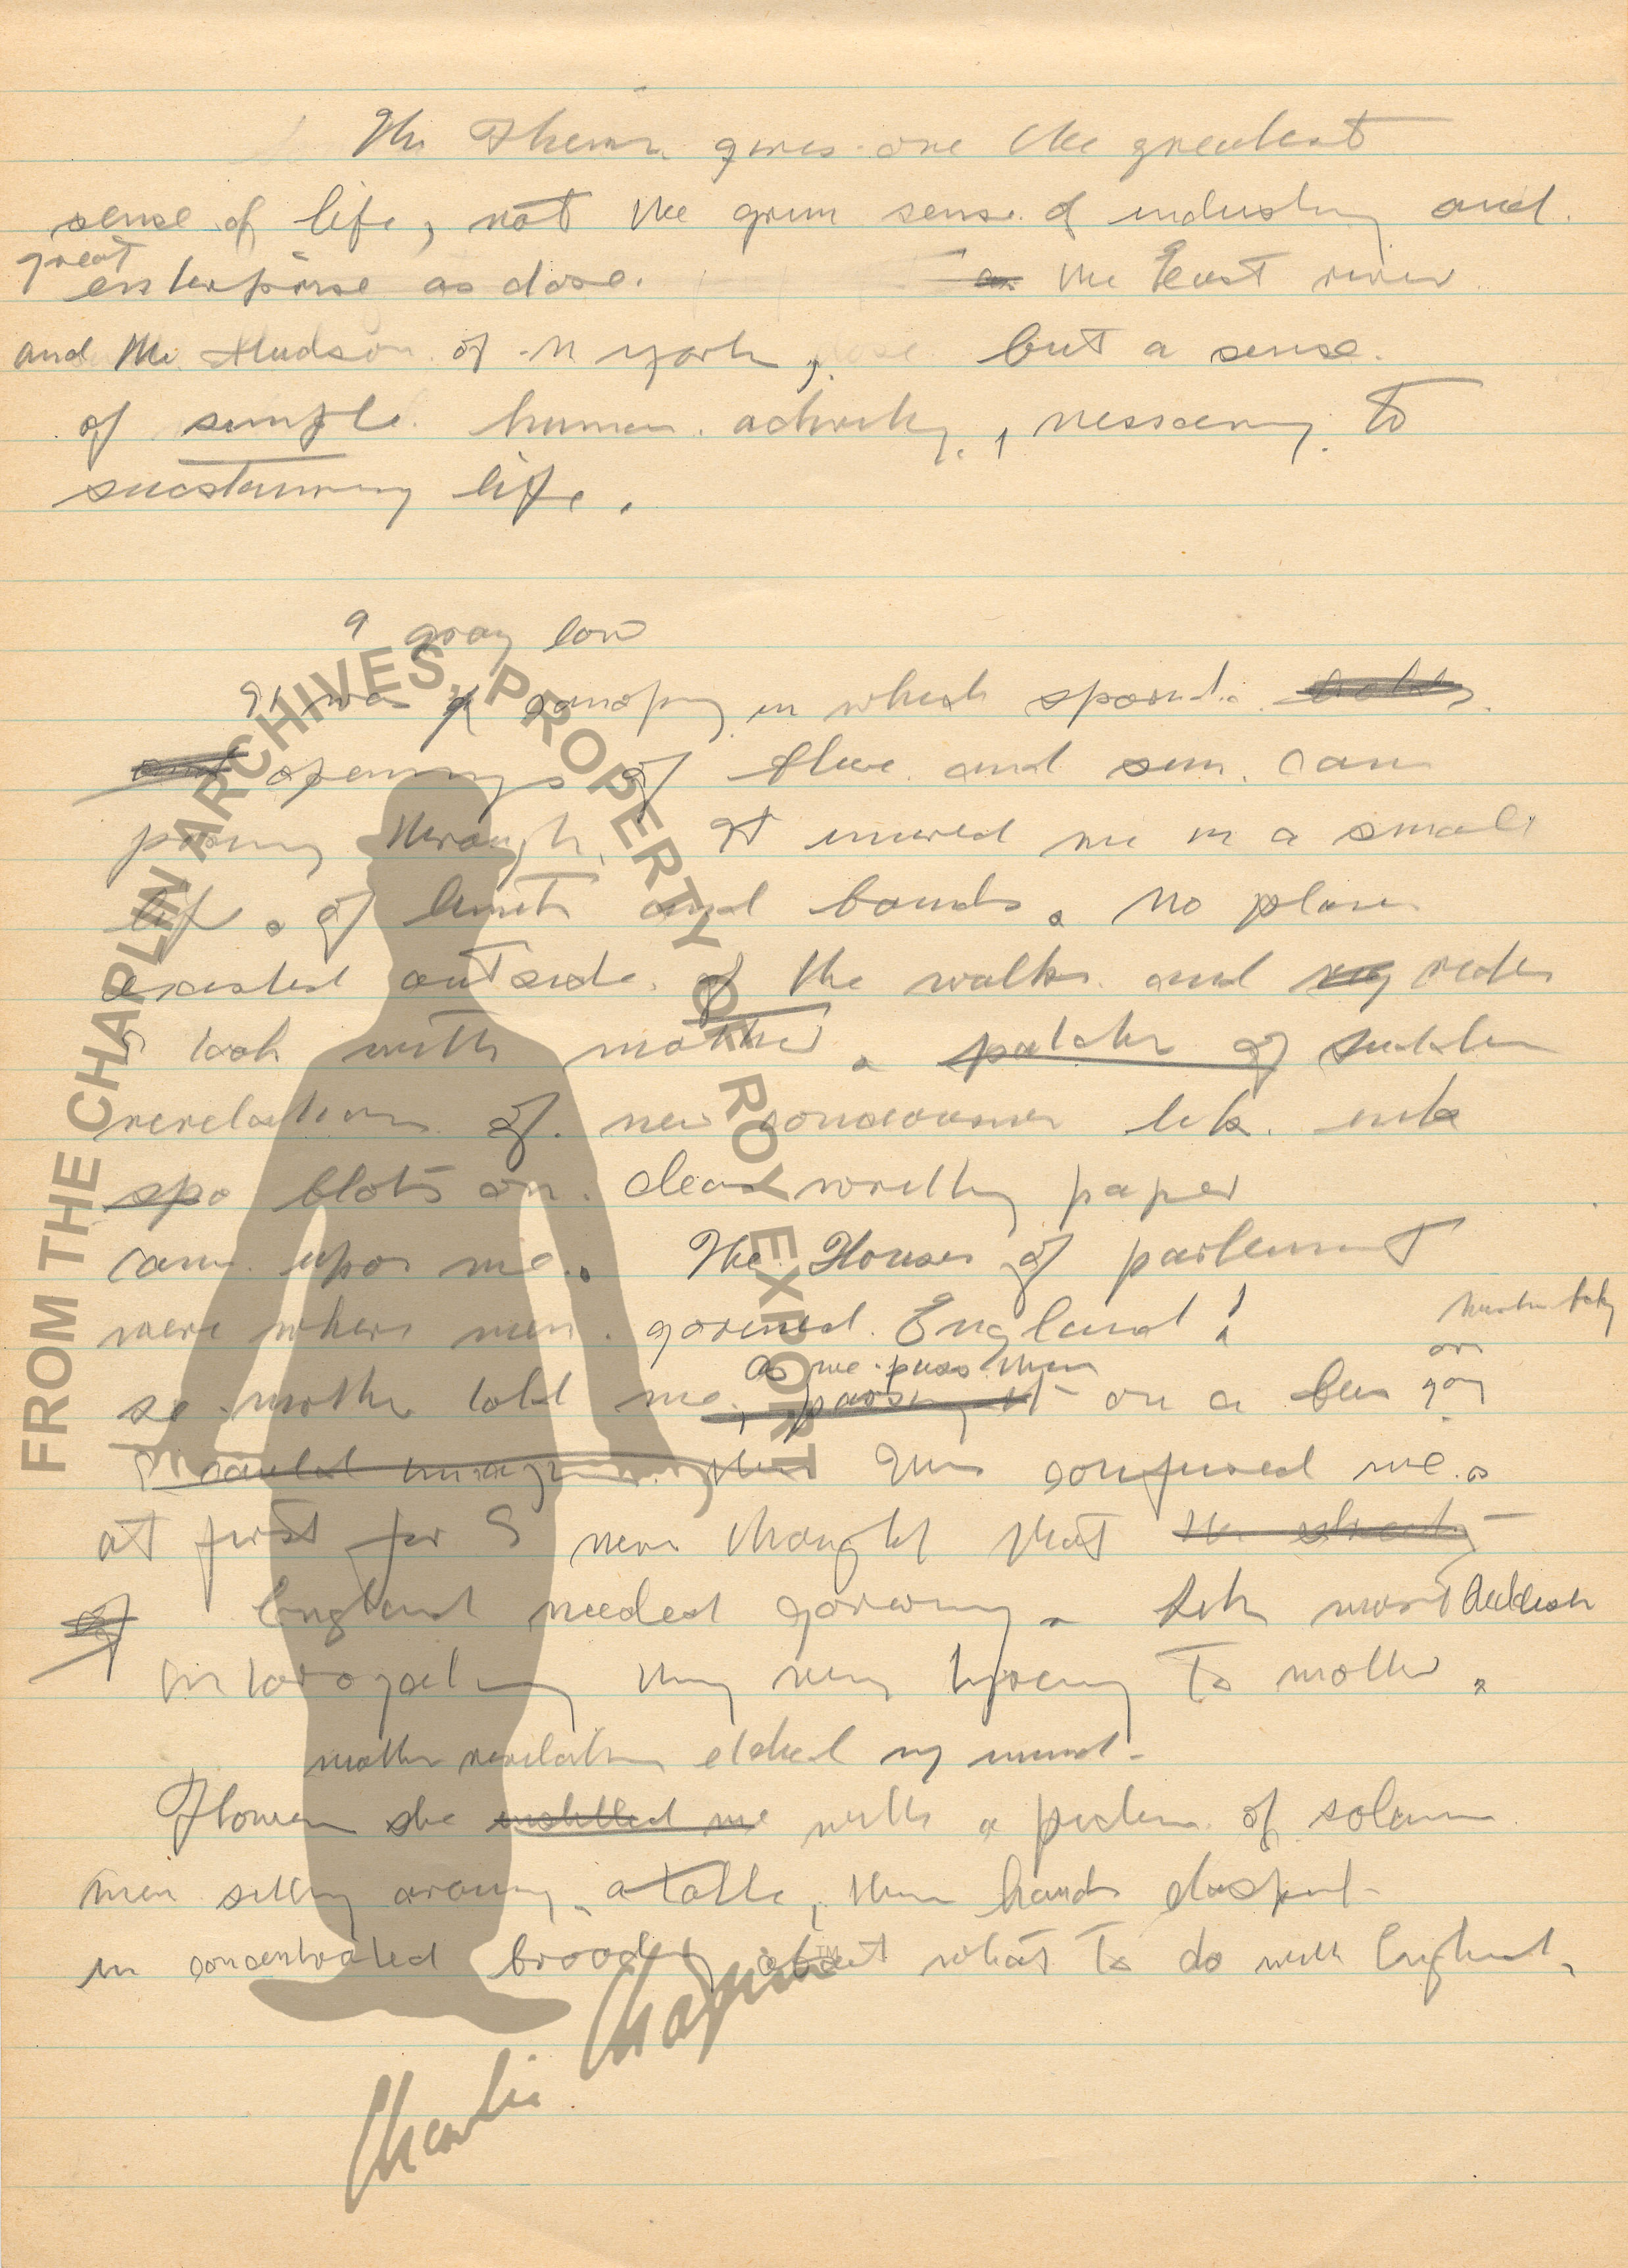 The Thems gives one the greatest
sense of life, not the grim sense of industry and
great
enterprise as dose. the East river
and the Hudson of N York, but a sense
of simple human activity, nessecery to
sucstanning life.
a gray low
It was a canopy in which sporadic
openings of blue and sun came
pooring through. It inured me in a small
life of limits and bounds. No places
existed outside of the walks and rides
I took with mother. patches of sudden
revelations of new conciousness like ink
spo blots on clean writting paper
came upon me. The Houses of parlement
were where men govened England!
so mother told me, as we pass them on a bus going
over
passing it
This confused me
at first for I never thought that
of England needed govening. like most
interogating they very tiresing to mother.
mother revelation etched my mind.
However she instilled me with a picture of solemn
men sitting around a table, their hands clasped
in concentrated brooding about what to do with England.
FROM THE CHAPLIN ARCHIVES, PROPERTY OF ROY EXPORT
TM
Charlie Chaplin